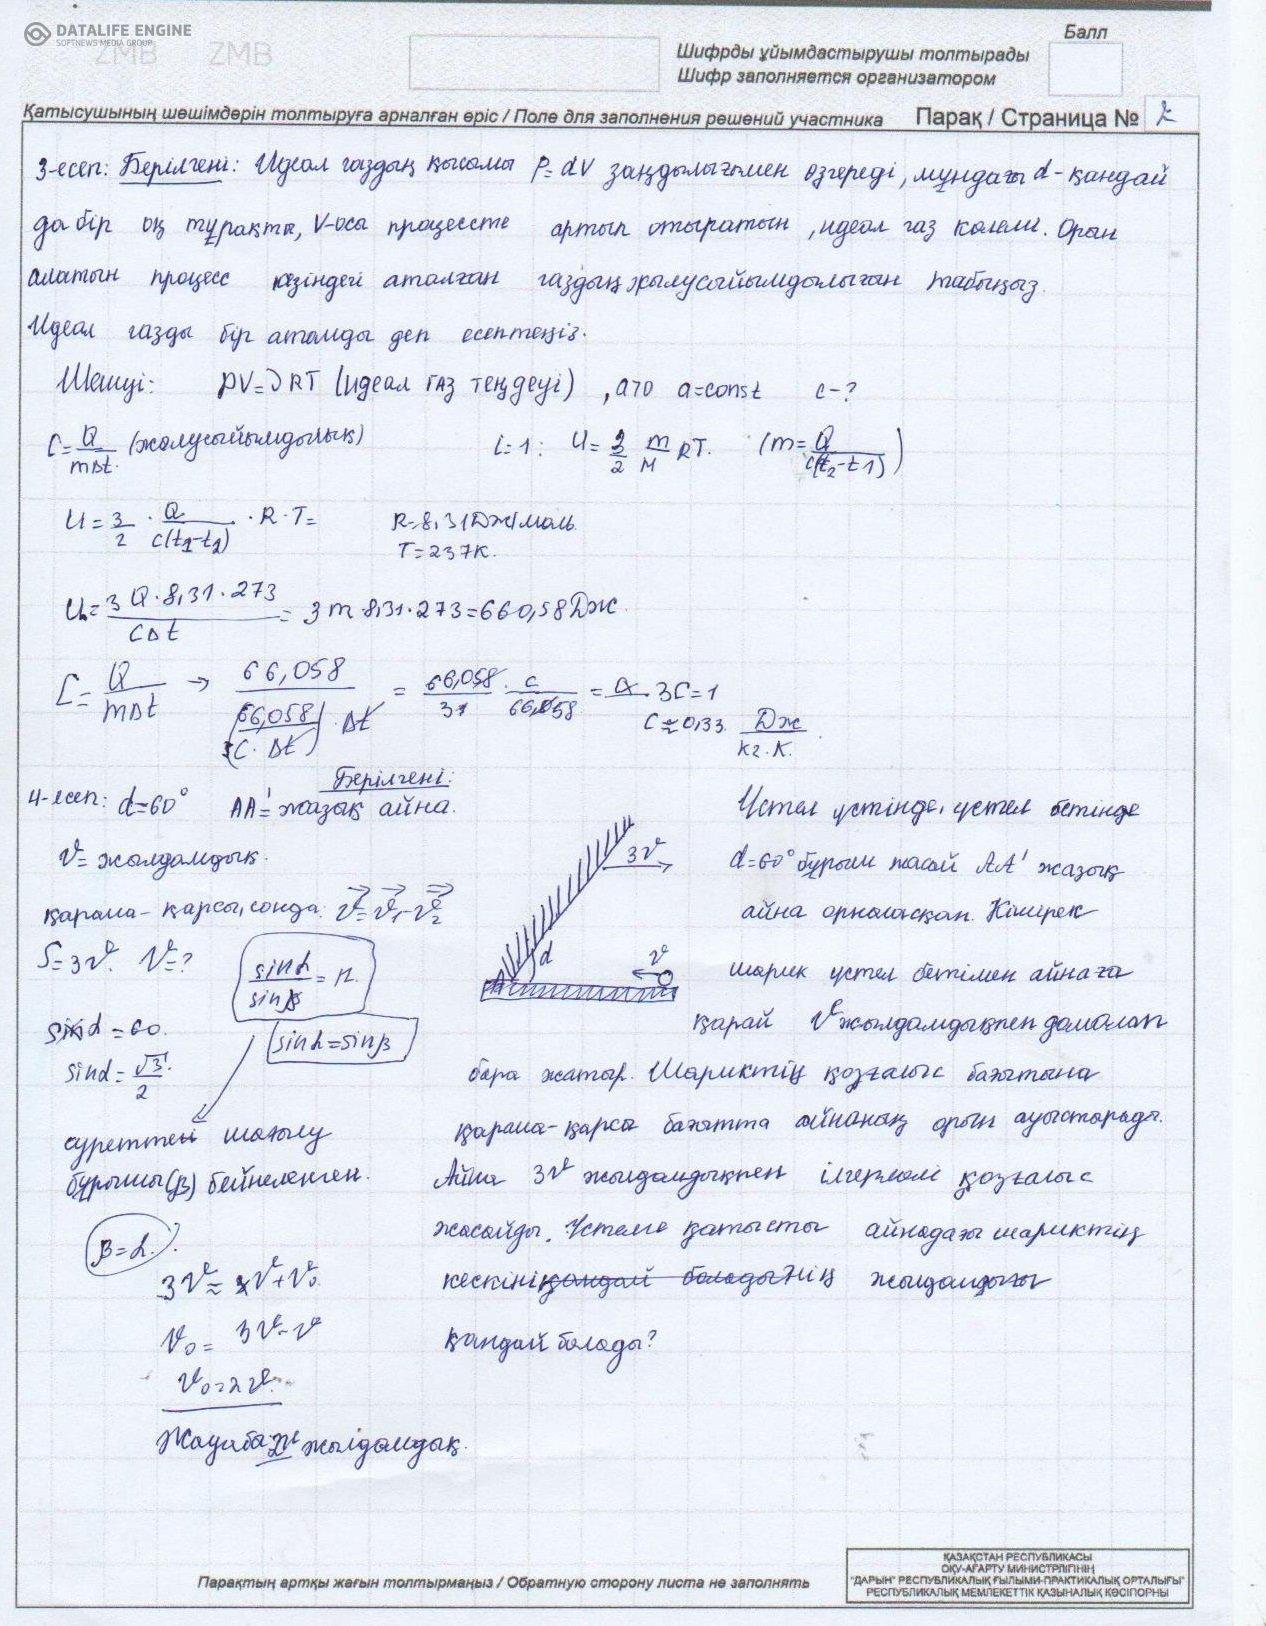 DATALIFE ENGINE
SOFTNEWS MEDIA GROUP
ZMB ZMB
Балл
Шифрды ұйымдастырушы толтырады
Шифр заполняется организатором
Қатысушының шешімдерін толтыруға арналған өріс / Поле для заполнения решений участника
Парақ / Страница № 2
3-есеп: Берілгені: Идеал газдың қысымы P=αV заңдылығымен өзгереді, мұндағы α-қандай
да бір оң тұрақты, V-осы процессте артып отыратын, идеал газ көлемі. Орын
алатын процесс кезіндегі аталған газдың жылусыйымдылығын табыңыз.
Идеал газды бір атомды деп есептеңіз.
Шешуі: pV=νRT (идеал газ теңдеуі), a>0 a=const c-?
C=Q/mΔt (жылусыйымдылық) i=1: U=3/2 m/M RT. (m=Q/c(t2-t1))
U=3/2 · Q/c(t1-t2) · R·T= R=8,31Дж/моль
T=237К.
U=3Q·8,31·273/CΔt = 3m·8,31·273=660,58Дж.
C=Q/mΔt → 66,058/(66,058/3C·Δt)·Δt = 66,058/31 · c/66,058 = 3C=1
C≈0,33 Дж/кг·К.
4-есеп: α=60° Берілгені: AA'= жазық айна.
v= жылдамдық.
қарама-қарсы, сонда: v=v1-v2
S=3v. v=?
sinα/sinβ=n.
sinα=60.
sinα=sinβ
sinα=√3/2
суреттегі шағылу
бұрышы(β) бейнеленген.
β=α.
3v=v+v0
v0=3v-v
v0=2v
Жауабы: 2v жылдамдық.
3v
α
v
Үстел үстінде, үстел бетінде
α=60° бұрыш жасай AA' жазық
айна орналасқан. Кішірек
шарик үстел бетімен айнаға
қарай v жылдамдықпен домалап
бара жатыр. Шариктің қозғалыс бағытына
қарама-қарсы бағытта айнаның орын ауыстырады.
Айна 3v жылдамдықпен ілгерлемелі қозғалыс
жасайды. Үстелге қатысты айнадағы шариктің
кескінінің жылдамдығы
қандай болады?
Парақтың артқы жағын толтырмаңыз / Обратную сторону листа не заполнять
ҚАЗАҚСТАН РЕСПУБЛИКАСЫ
ОҚУ-АҒАРТУ МИНИСТРЛІГІНІҢ
"ДАРЫН" РЕСПУБЛИКАЛЫҚ ҒЫЛЫМИ-ПРАКТИКАЛЫҚ ОРТАЛЫҒЫ"
РЕСПУБЛИКАЛЫҚ МЕМЛЕКЕТТІК ҚАЗЫНАЛЫҚ КӘСІПОРНЫ